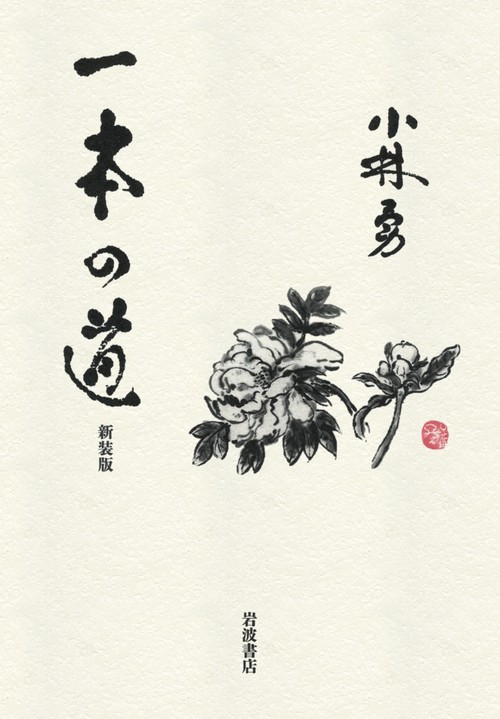 小林勇
一本の道
新装版
岩波書店